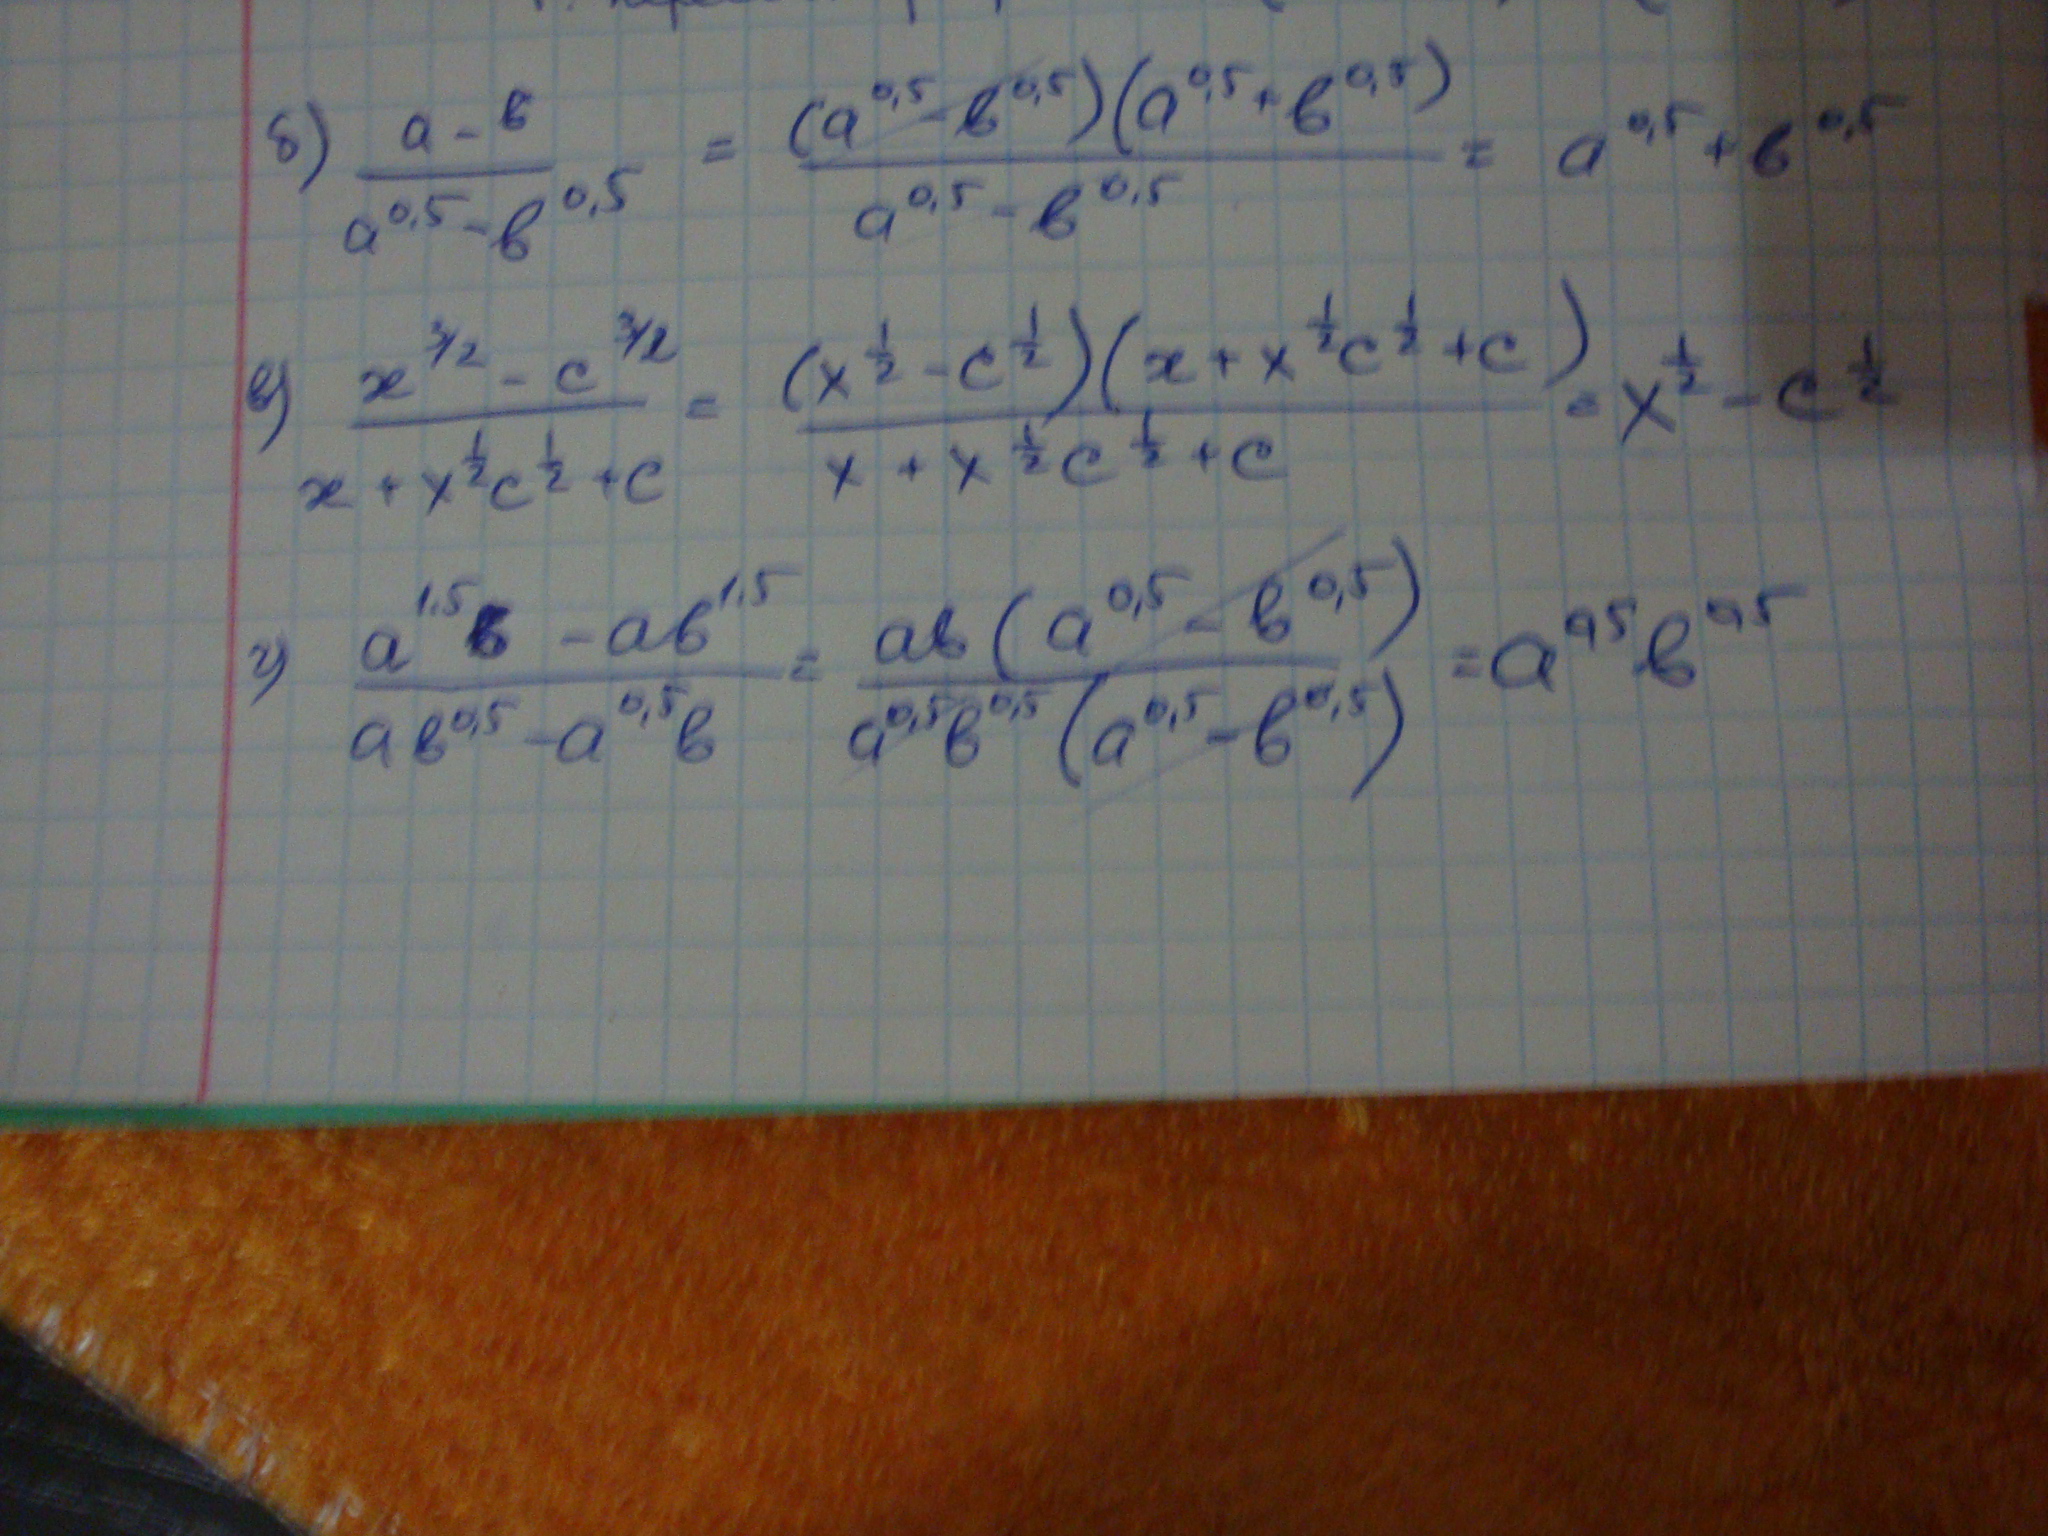 б) a - в / a^0,5 - в^0,5 = (a^0,5 - в^0,5)(a^0,5 + в^0,5) / a^0,5 - в^0,5 = a^0,5 + в^0,5
в) x^3/2 - c^3/2 / x + x^1/2 c^1/2 + c = (x^1/2 - c^1/2)(x + x^1/2 c^1/2 + c) / x + x^1/2 c^1/2 + c = x^1/2 - c^1/2
г) a^1.5 в - aв^1.5 / aв^0,5 - a^0,5 в = aв(a^0,5 - в^0,5) / a^0,5 в^0,5 (a^0,5 - в^0,5) = a^0,5 в^0,5